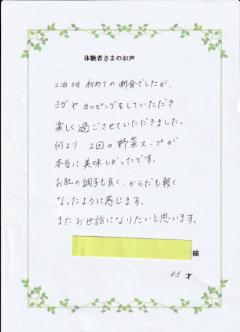 体験者さまのお声
2泊3日 初めての断食でしたが、
ヨガや カッピングをしていただき
楽しく過ごさせていただきました。
何より、2回の野菜スープが
本当に美味しかったです。
お肌の調子も良く、からだも軽く
なったように感じます。
またお世話になりたいと思います。
様
33才